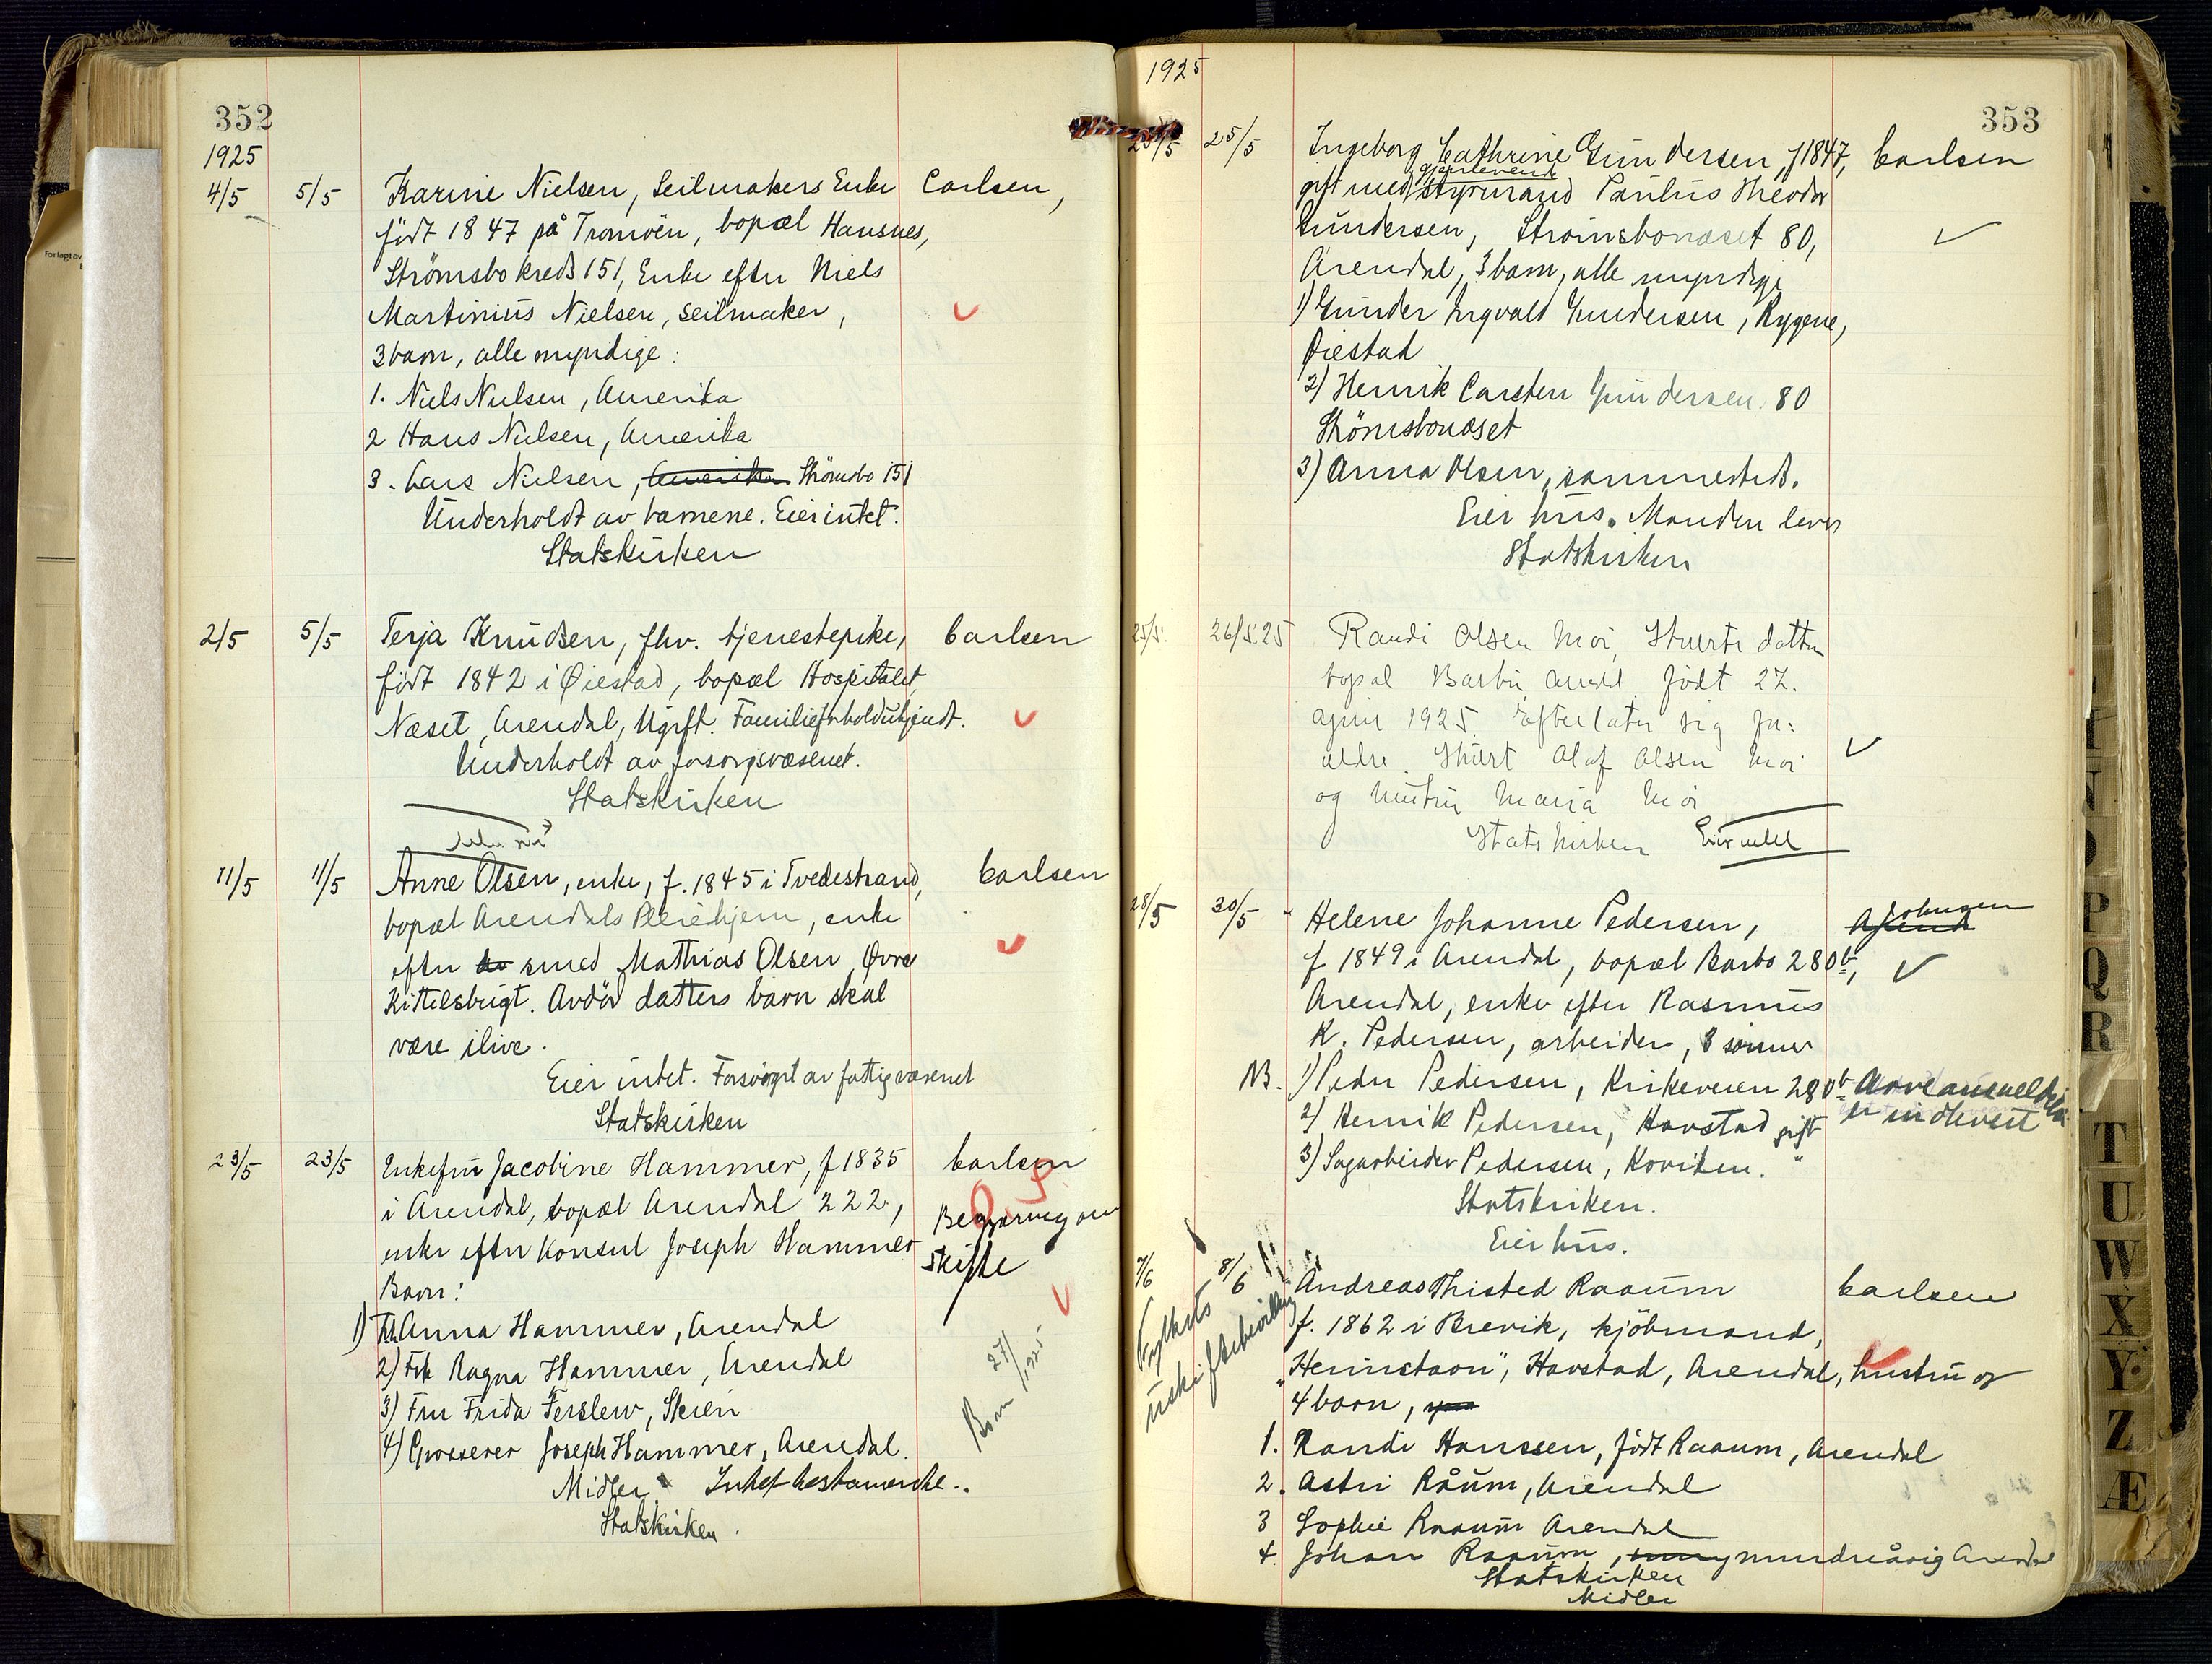 352
1925
4/5 5/5 Karine Nielsen, Seilmakers Enke Carlsen,
født 1847 på Tromöen, bopæl Hansnes,
Strömsbo kreds 151, Enke efter Niels
Martinius Nielsen, seilmaker,
3 barn, alle myndige:
1. Niels Nielsen, Amerika
2 Hans Nielsen, Amerika
3. Lars Nielsen, Amerika Strömsbo 151
Underholdt av barnene. Eier intet.
Statskirken
2/5 5/5 Terja Knudsen, fhv. tjenestepike, Carlsen
født 1842 i Øiestad, bopæl Hospitalet,
Næset, Arendal, Ugift. Familieforhold ukjendt.
Underholdt av forsorgsvæsenet.
Statskirken
11/5 11/5 Anne Olsen, enke, f. 1845 i Tvedestrand, Carlsen
bopæl Arendals Pleiehjem, enke
efter smed Mathias Olsen, Øvre
Kittelsbugt. Avdöd datters barn skal
være ilive.
Eier intet. Forsörget av fattigvæsenet
Statskirken
23/5 23/5 Enkefru Jacobine Hammer, f 1835 Carlsen
i Arendal, bopæl Arendal 222, Begjæring om
enke efter Konsul Joseph Hammer skifte
Barn:
1) Frk. Anna Hammer, Arendal
2) Frk Ragna Hammer, Arendal
3) Fru Frida Ferslew, Skien
4) Grosserer Joseph Hammer, Arendal.
27/ 1925
Midler. Intet testamente..
Statskirken.
1925
353
25/5 25/5 Ingeborg Cathrine Gundersen, f 1847, Carlsen
gift med gjenlevende styrmand Paulus Theodor
Gundersen, Strömsbonæset 80,
Arendal, 3 barn, alle myndige
1) Gunder Ingvald Gundersen, Rygene,
Øiestad
2) Henrik Carsten Gundersen 80
Strömsbonæset
3) Anna Olsen, sammesteds.
Eier hus. Manden lever
Statskirken
25/5. 26/5.25 Randi Olsen Moi, Stuerts datter
bopæl Barbu Arendal født 27.
april 1925. Efterlater sig for=
ældre. Stuert Olaf Olsen Moi
og hustru Maria Moi
Statskirken Eier intet
28/5 30/5 Helene Johanne Pedersen,
f 1849 i Arendal, bopæl Barbo 280b,
Arendal, enke efter Rasmus
K. Pedersen, arbeider, 3 sönner
NB. 1) Peder Pedersen, Kirkeveien 280b Arveanmeldelse
2) Henrik Pedersen, Havstad gift er indlevert
3) Sagarbeider Pedersen, Koviken. "
Statskirken.
Eier hus.
7/6 8/6 Andreas Thisted Raaum Carlsen
f. 1862 i Brevik, kjöbmand,
"Heimstaon", Havstad, Arendal, hustru og
4 barn,
Fylkets
uskiftebevilling
1. Randi Hanssen, født Raaum, Arendal
2. Astri Råum, Arendal
3 Sophie Raaum Arendal
4. Johan Raaum, mindreårig Arendal
Statskirken
Midler